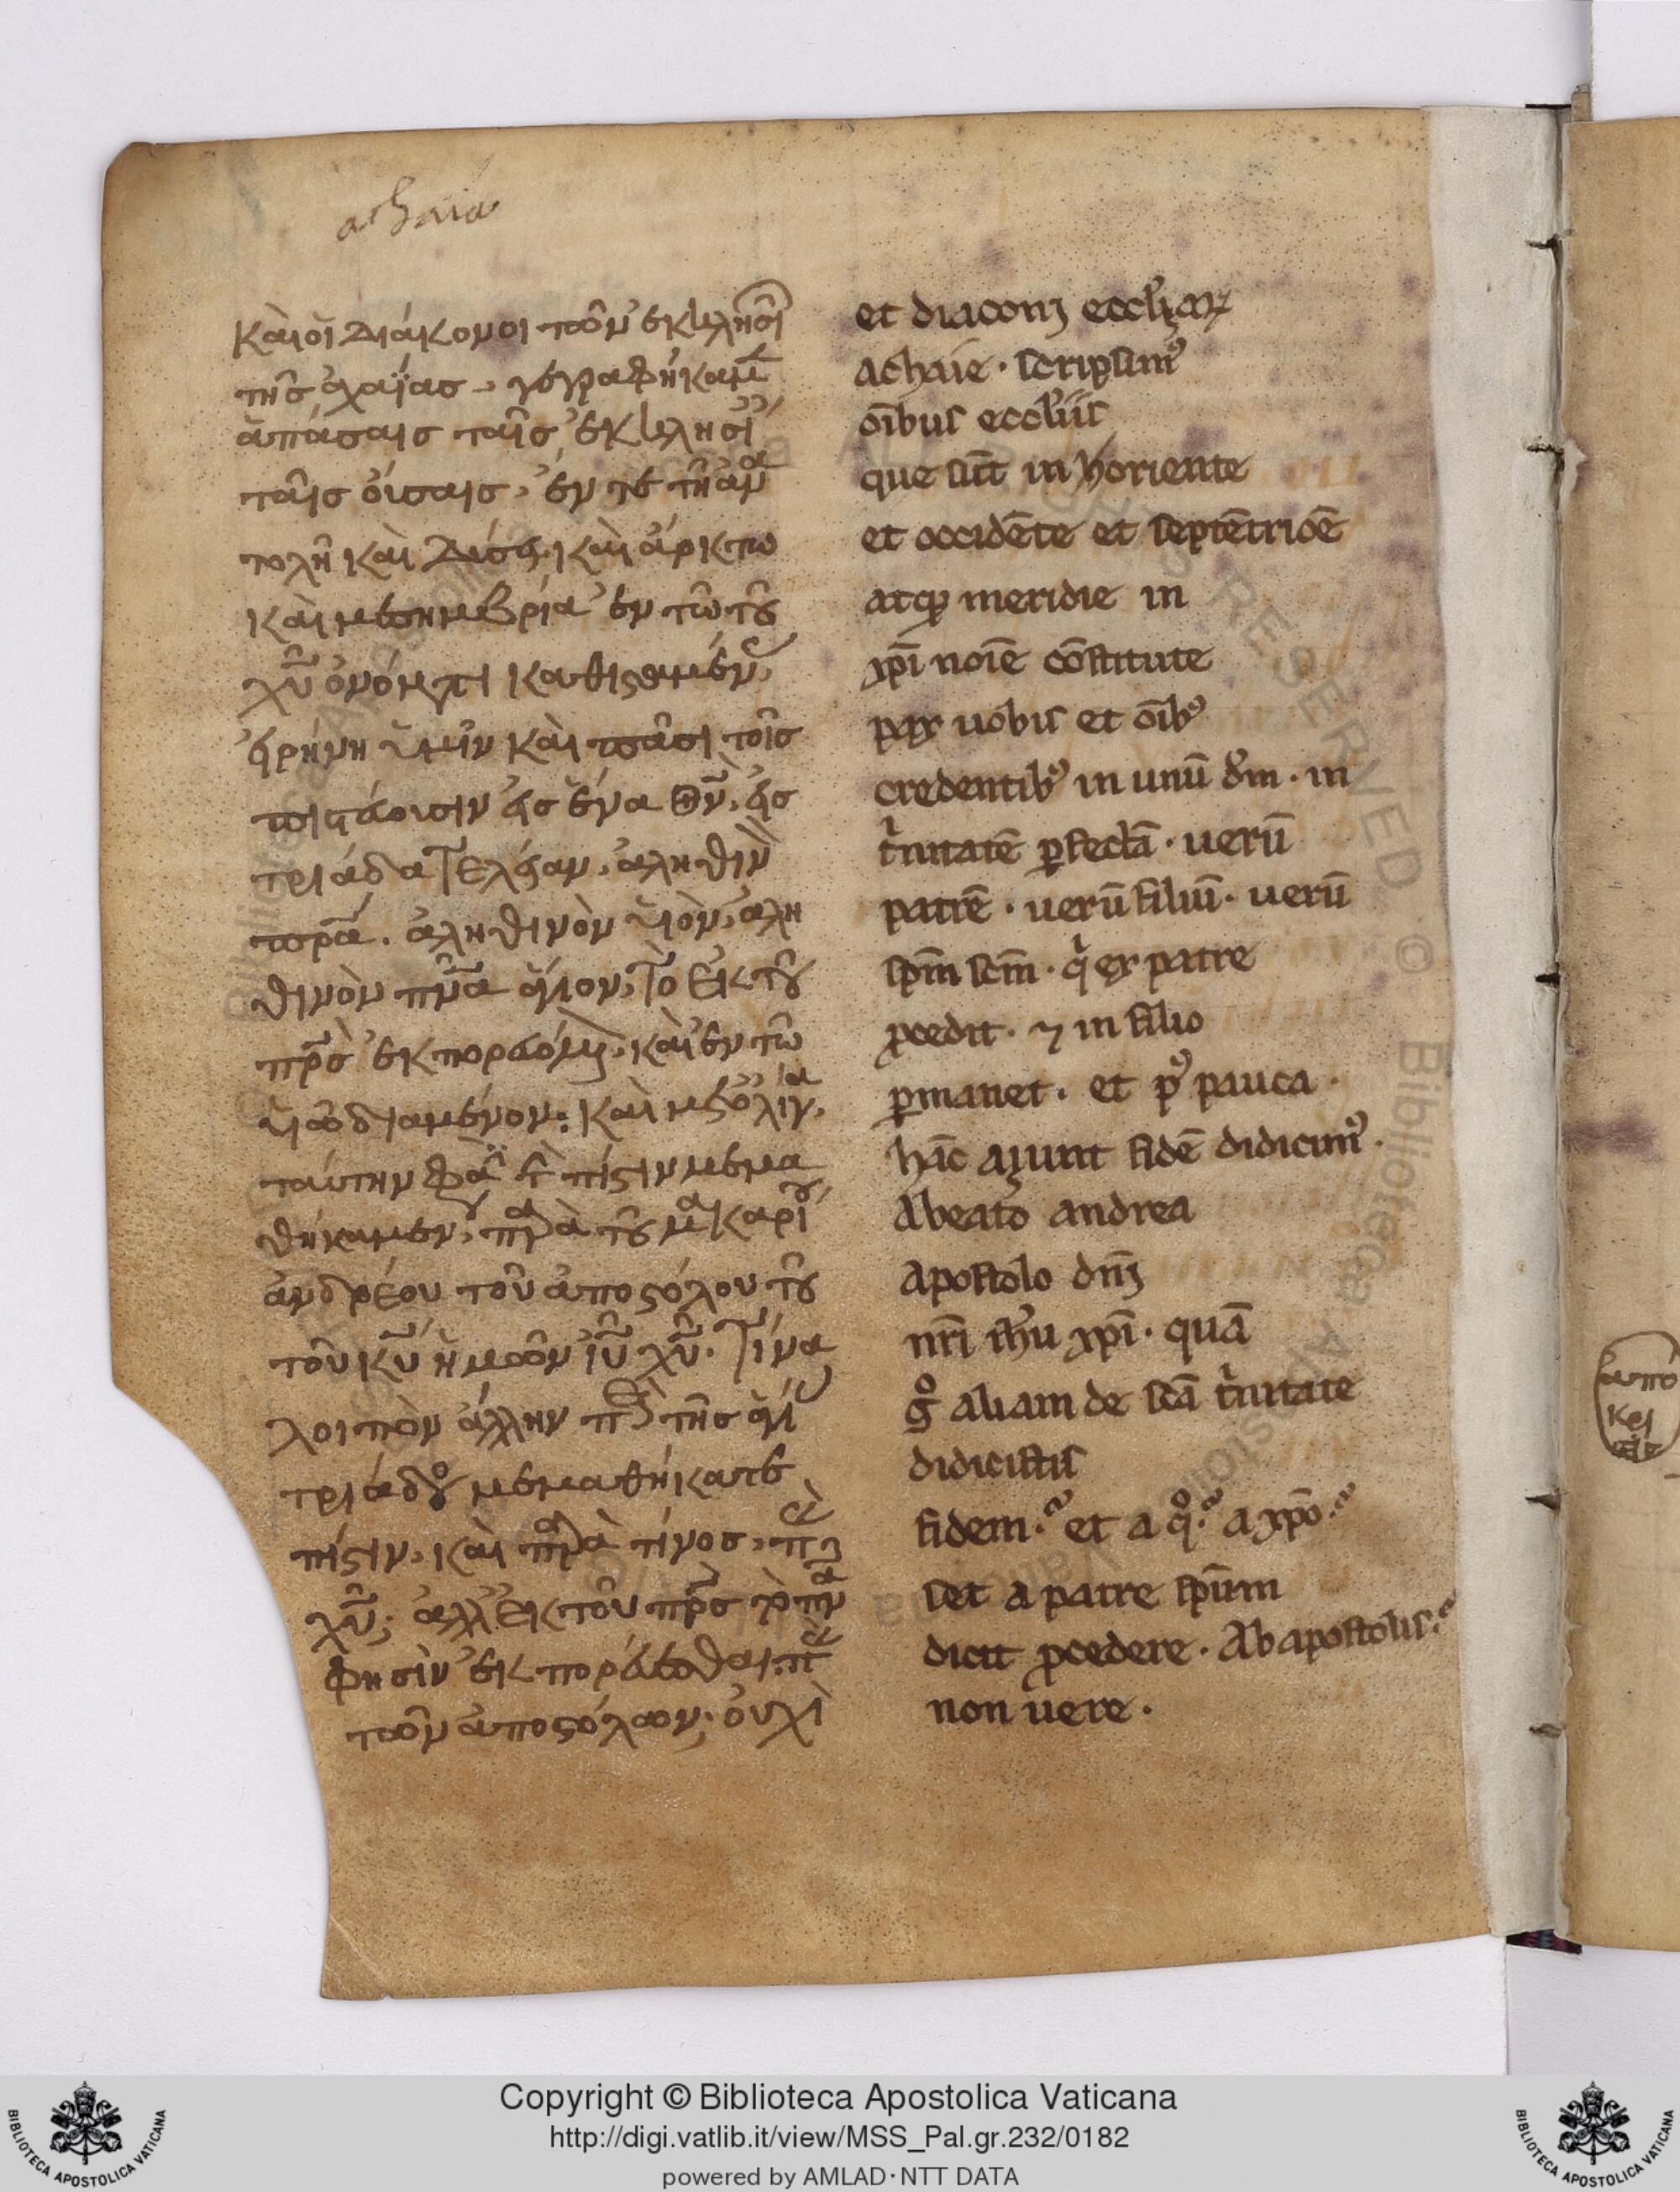 achaia
καὶ οἱ διάκονοι τῶν ἐκκλησι
τῆς ἀχαΐας, γεγραφήκαμ
ἁπάσαις ταῖς ἐκκλησι
ταῖς οὔσαις, ἔν τε τῆ ἀνα
τολῆ καὶ δύσει καὶ ἄρκτω
καὶ μεσημβρία ἐν τῶ τοῦ
χῦ ὀνόματι καθισταμέν
εἰρήνη ὑμῖν καὶ πᾶσι τοῖς
πιστεύουσιν εἰς ἕνα θν, εἰς
τριάδα τελείαν, ἀληθιν
πρα. ἀληθινὸν υἱὸν, ἀλη
θινὸν πνα ἅγιον, τὸ ἐκ τοῦ
πρς ἐκπορευόμ, καὶ ἐν τῶ
υἱῶ διαμένον: καὶ μετ ὀλίγα,
ταύτην φα τ πίστιν μεμα
θήκαμεν, παρὰ τοῦ μακαρίου
ἀνδρέου τοῦ ἀποστόλου τοῦ
τοῦ κυ ἡμῶν ιυ χυ. τίνα
λοιπὸν ἄλλην περὶ τῆς ἁγί
τριάδος μεμαθήκατε
πίστιν, καὶ παρὰ τίνος, παρὰ
χυ; ἀλλ' ἐκ τοῦ πρς τὸ πνα
φησὶν ἐκπορεύεσθαι.
τῶν ἀποστόλων; οὐχὶ
et diaconj eccl'iaꝝ
achaie · scripsim⁹
oībus eccl'iis
que sūt in horiente
et occidēte et septētrioē
atqꝫ meridie in
xp̄i noīe cōstitute
pax uobis et oīb⁹
credentib⁹ in unū d'm · in
t'nitatē ꝑfectā · uerū
patrē · uerū filiū · uerū
sp̄m sc̄m · q' ex patre
ꝓcedit · ⁊ in filio
ꝑmanet · et p⁹ pauca ·
hāc ajunt fidē didicim⁹ ·
A beato andrea
apostolo dn̄j
nr̄i ih'u xp̄i · quā
g° aliam de scā t'nitate
didicistis
fidem·? et a q°·? a xp̄o·?
set a patre sp̄um
dicit ꝓcedere · Ab apostolis·?
non uere ·
ἀπό
και
Copyright © Biblioteca Apostolica Vaticana
http://digi.vatlib.it/view/MSS_Pal.gr.232/0182
powered by AMLAD·NTT DATA
BIBLIOTECA APOSTOLICA VATICANA
BIBLIOTECA APOSTOLICA VATICANA